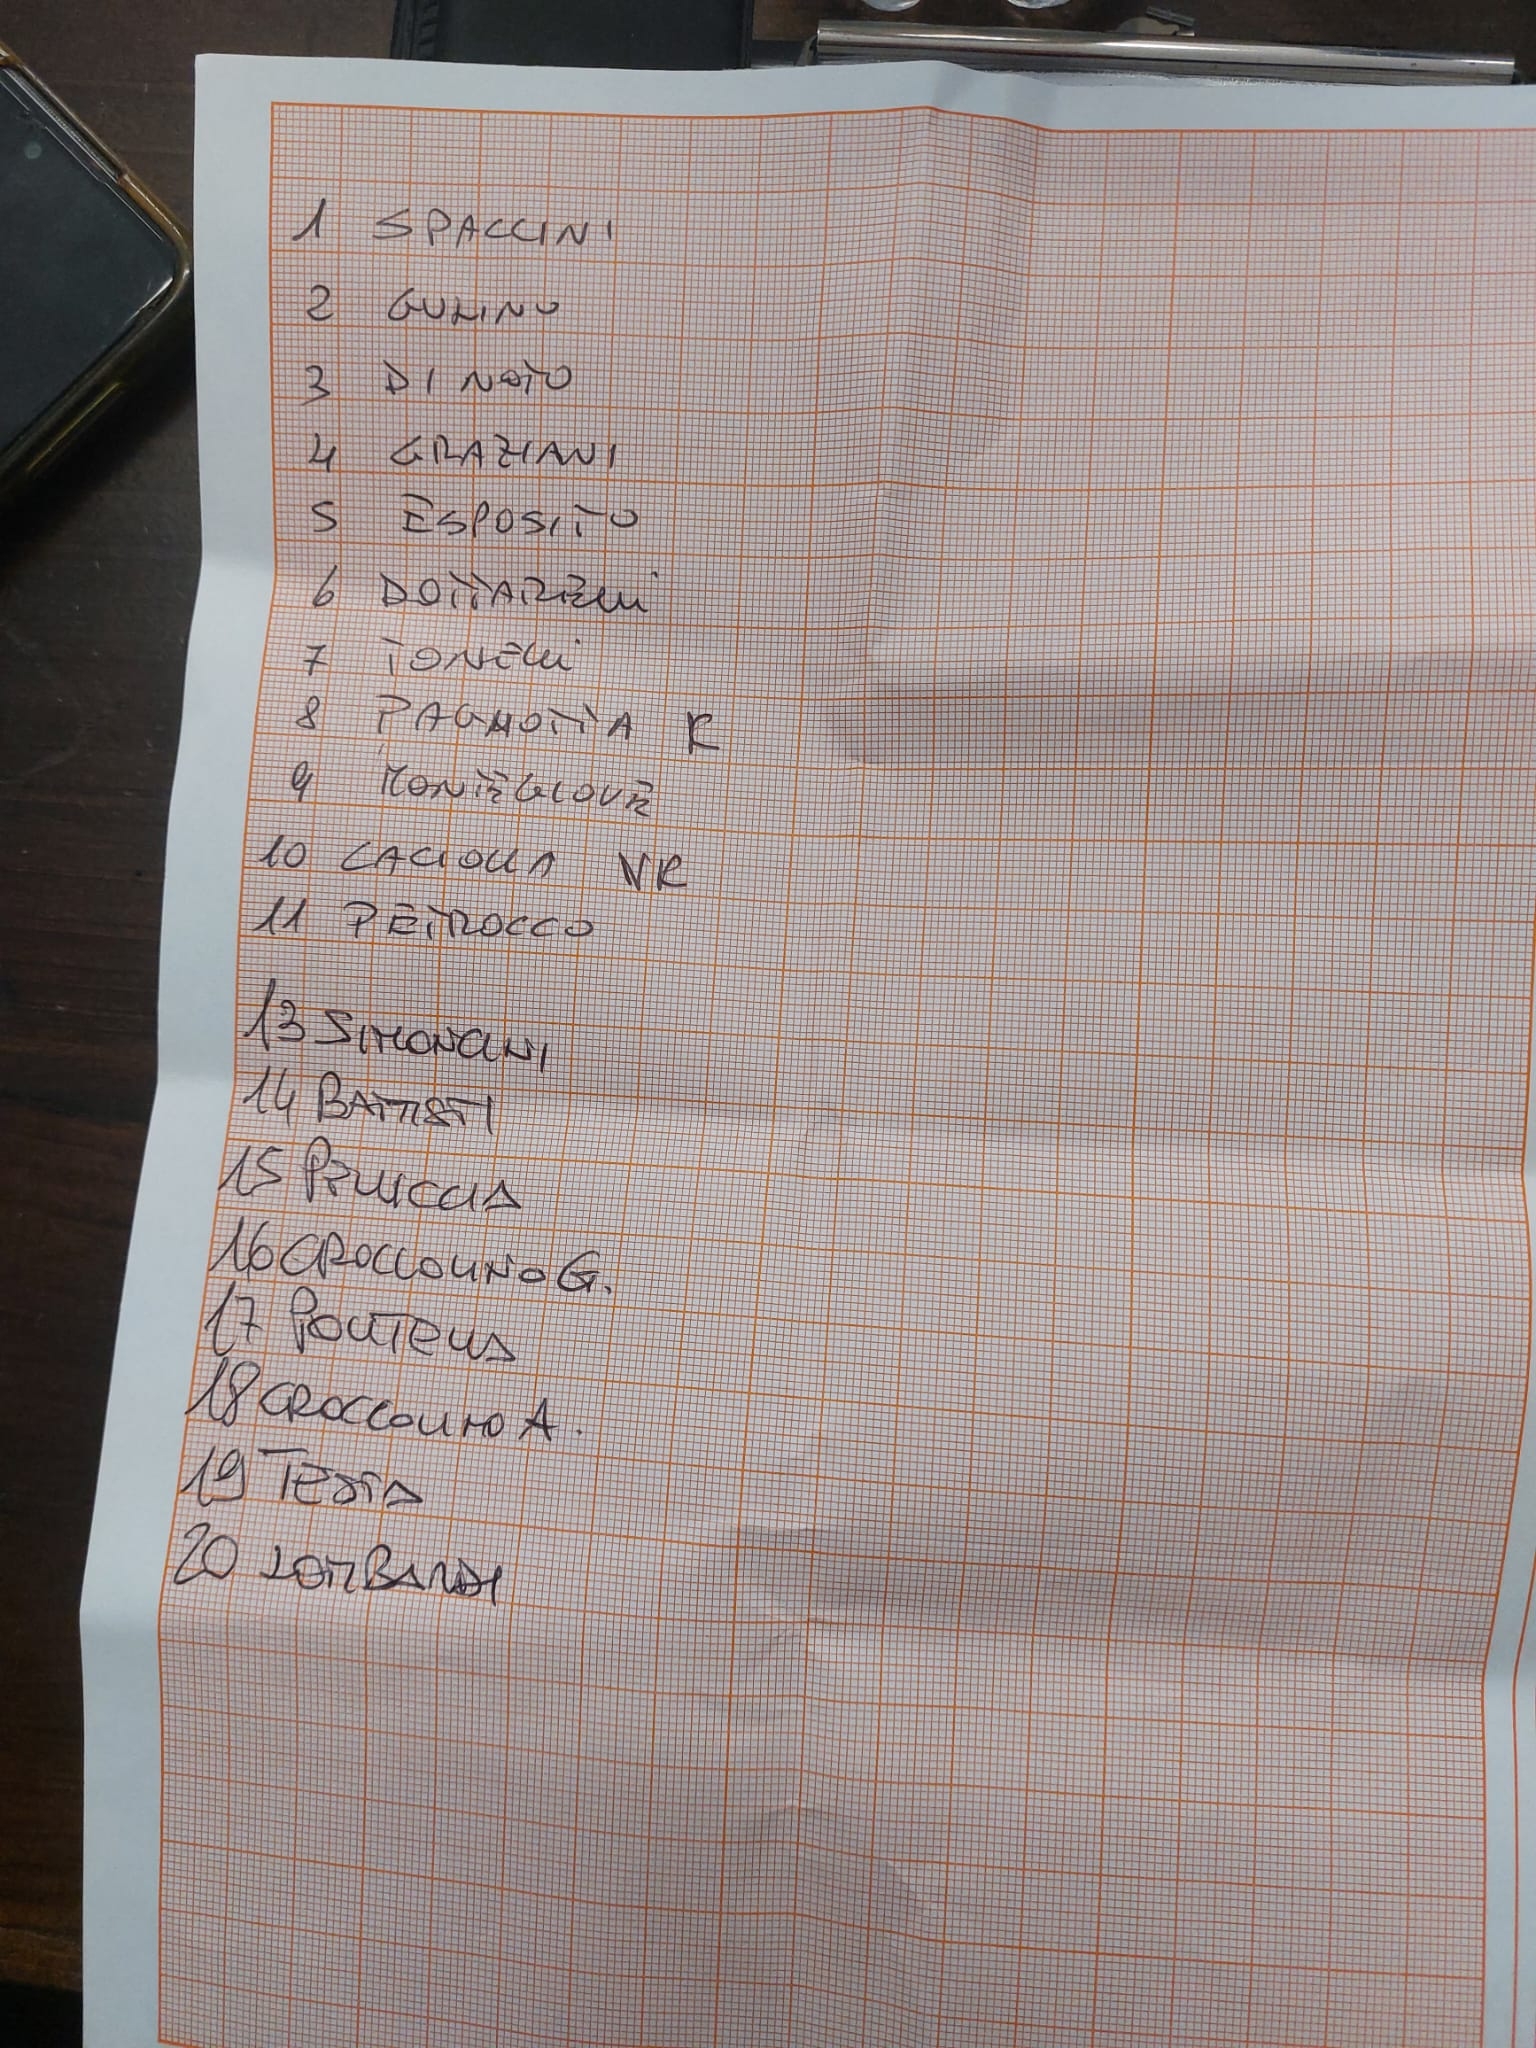 1 SPACCINI
2 GULINO
3 DI NOTO
4 GRAZIANI
5 ESPOSITO
6 DOTTARELLI
7 TONELLI
8 PAGNOTTA K
9 MONTEGIOVE
10 CACIOLLA VK
11 PETROCCO
13 SIMONCINI
14 BATTISTI
15 PELLICCIA
16 CROCCOLINO G.
17 
18 CROCCOLINO A.
19 TESTA
20 LOMBARDI